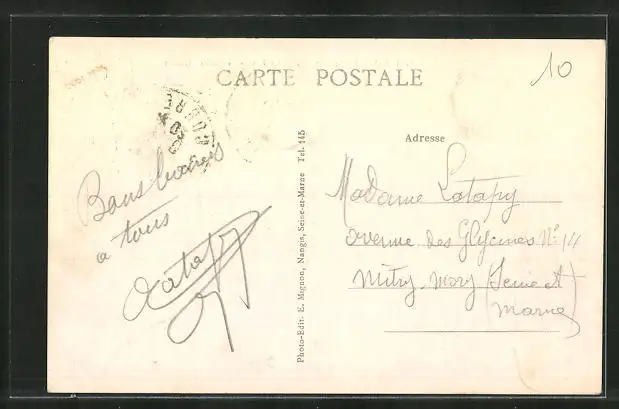 CARTE POSTALE
10
Adresse
Bons baisers
a tous
Latapy
Photo-Edit. E. Mignon, Nangis, Seine-et-Marne Tel. 145
Madame Latapy
avenue des Glycines N° 14
Mitry-Mory (Seine et
Marne)